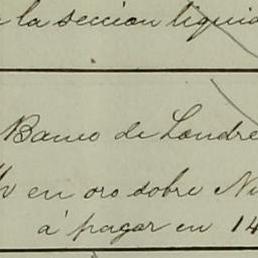 la seccion liquid
Banco de Londre
en oro sobre Nu
á pagar en 14